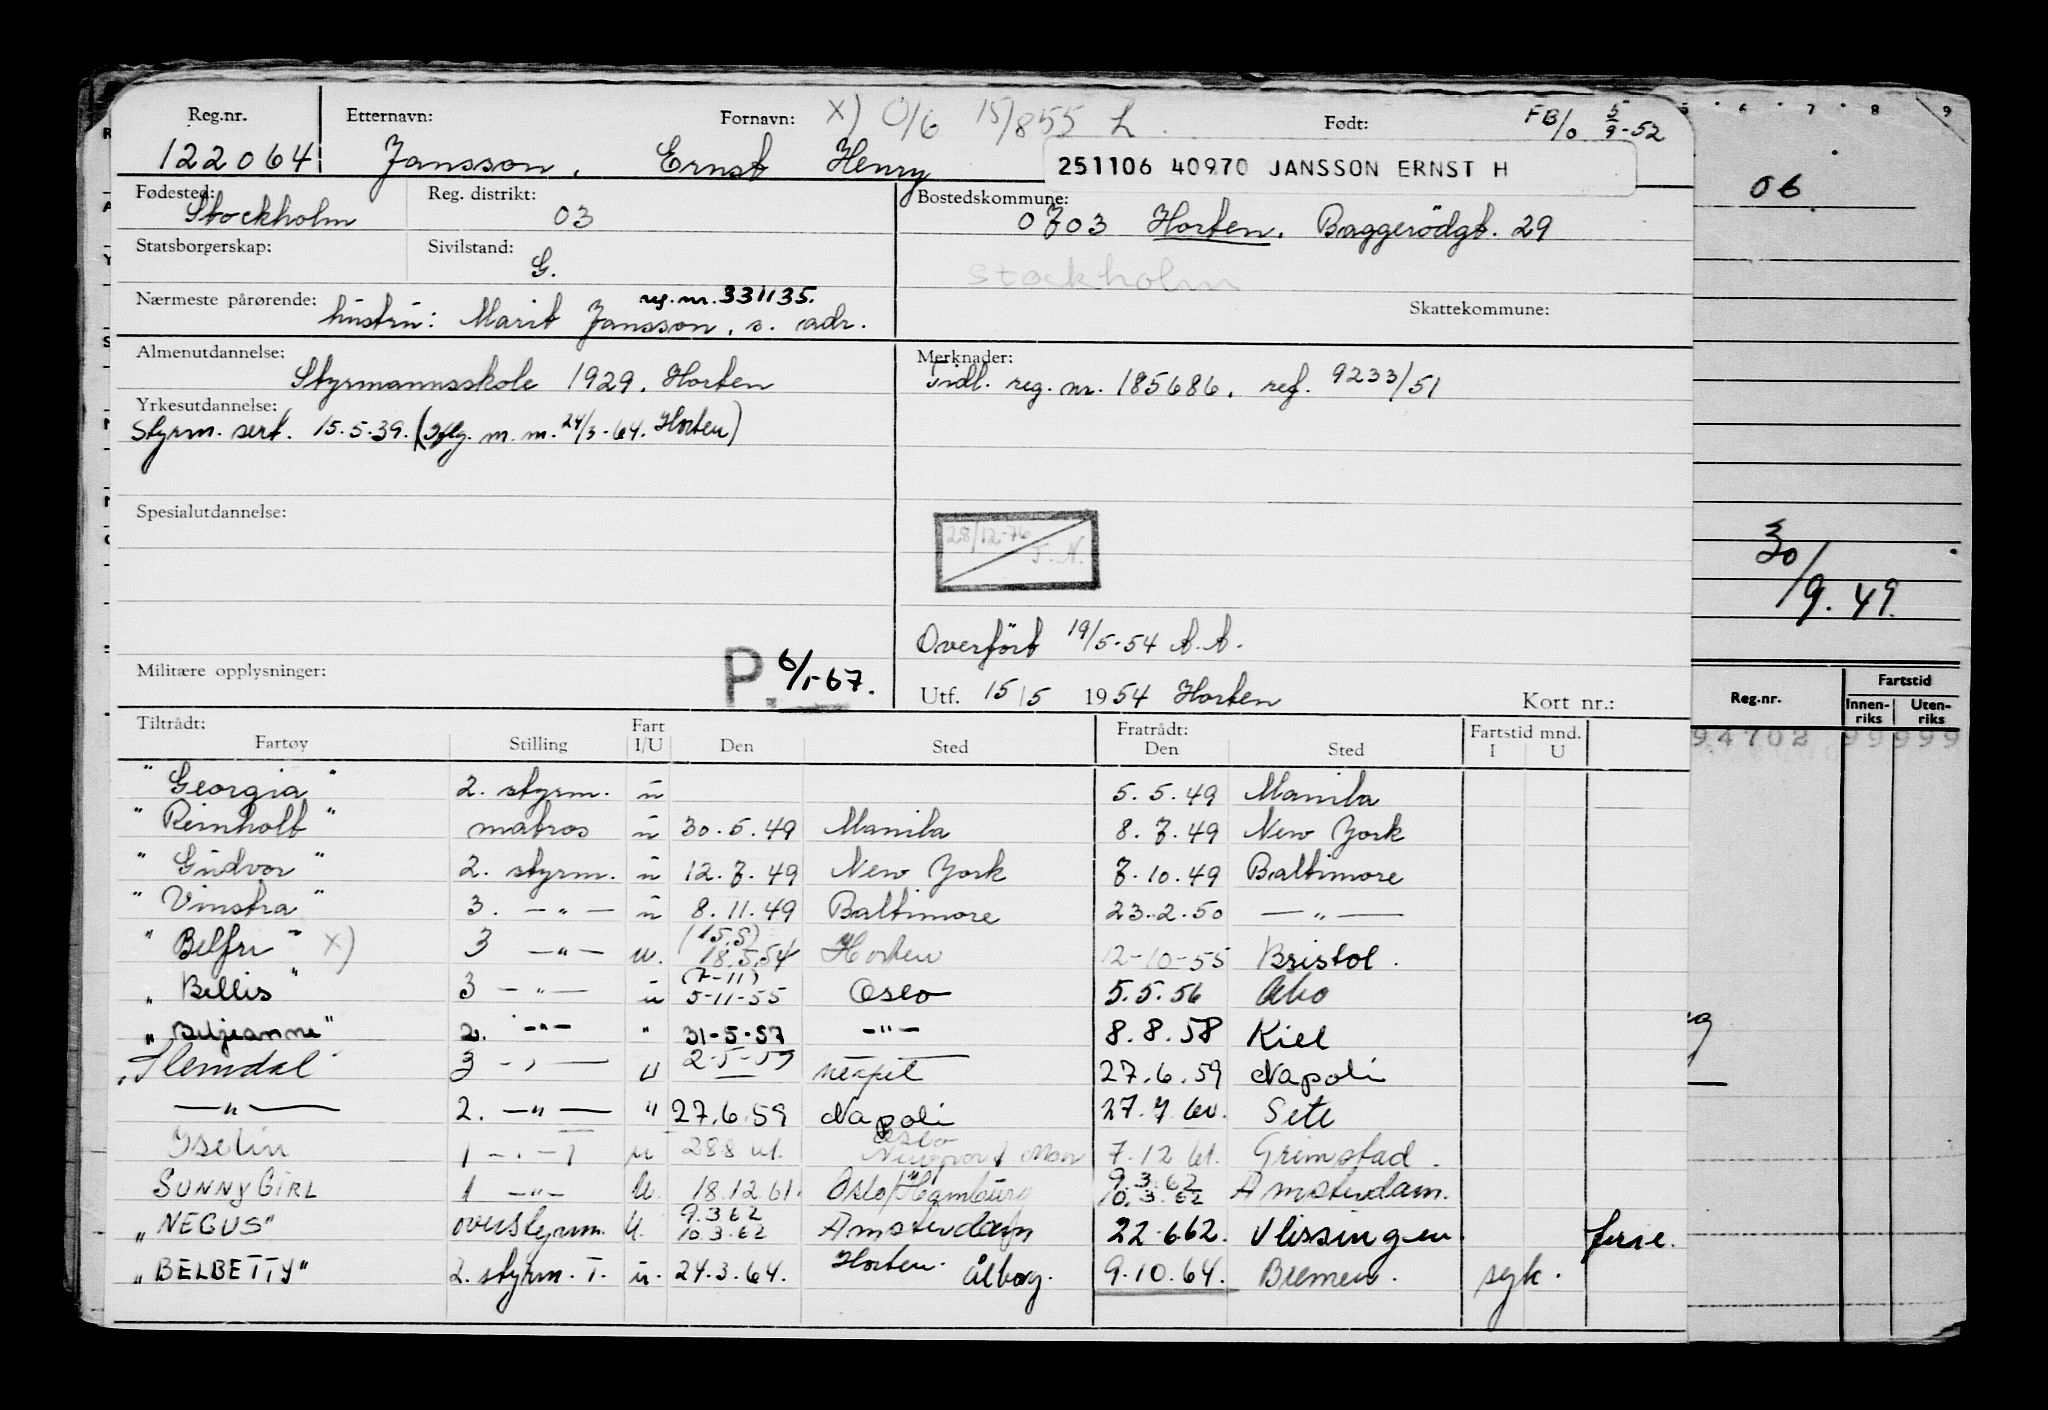 Reg.nr. Etternavn: Fornavn: x) 0/6 15/855 L. Født: FB/0 5/9-52
122064 Jansson, Ernst Henry 251106 40970 JANSSON ERNST H
Fødested: Stockholm Reg. distrikt: 03 Bostedskommune: 0703 Horten. Baggerödgt. 29
Statsborgerskap: Sivilstand: G. Stockholm
Nærmeste pårørende: hustru: Marit Jansson, s. adr. reg. nr. 331135. Skattekommune:
Almenutdannelse: Styrmannsskole 1929. Horten Merknader: Tidl. reg. nr. 185686, ref. 9233/51
Yrkesutdannelse: Styrm. sert. 15.5.39. ( m. m. 24/3-64. Horten)
Spesialutdannelse: 28/12-76 T.N.
Overfört 19/5-54 A.A.
Militære opplysninger: P. 6/1-67. Utf. 15/5 1954 Horten Kort nr.:
Tiltrådt: Fart Fratrådt: Fartstid mnd.
Fartøy Stilling I/U Den Sted Den Sted I U
"Georgia" 2. styrm. u 5.5.49 Manila
"Reinholt" matros u 30.5.49 Manila 8.7.49 New York
"Gudvor" 2. styrm. u 12.7.49 New York 7.10.49 Baltimore
"Vinstra" 3. —"— u 8.11.49 Baltimore 23.2.50 —"—
"Belfri" x) 3 —"— u. (15.5) 18.5.54 Horten 12-10-55 Bristol.
"Bellis" 3 —"— u (7-11) 5-11-55 Oslo 5.5.56 Åbo
"Beljeanne" 2. —"— " 31-5-57 —"— 8.8.58 Kiel
"Slemdal" 3 —"— u 2-5-59 Neapel 27.6.59 Napoli
—"— 2. —"— " 27.6.59 Napoli 27.7.60. Sete
Iselin 1 —"— u 28.8.61. Oslo Newport Mon 7.12.61. Grimstad.
SUNNY GIRL 1 —"— U. 18.12.61. Oslo/Hamburg 9.3.62 10.3.62 Amsterdam.
"NEGUS" overstyrm. U. 9.3.62 10.3.62 Amsterdam 22.6.62. Vlissingen. ferie.
"BELBETTY" 2. styrm. T. u. 24.3.64. Horten. Ålborg. 9.10.64. Bremen. syk.
5 6 7 8 9
06
30/9.49.
Reg.nr. Fartstid
Innenriks Utenriks
94702 99999